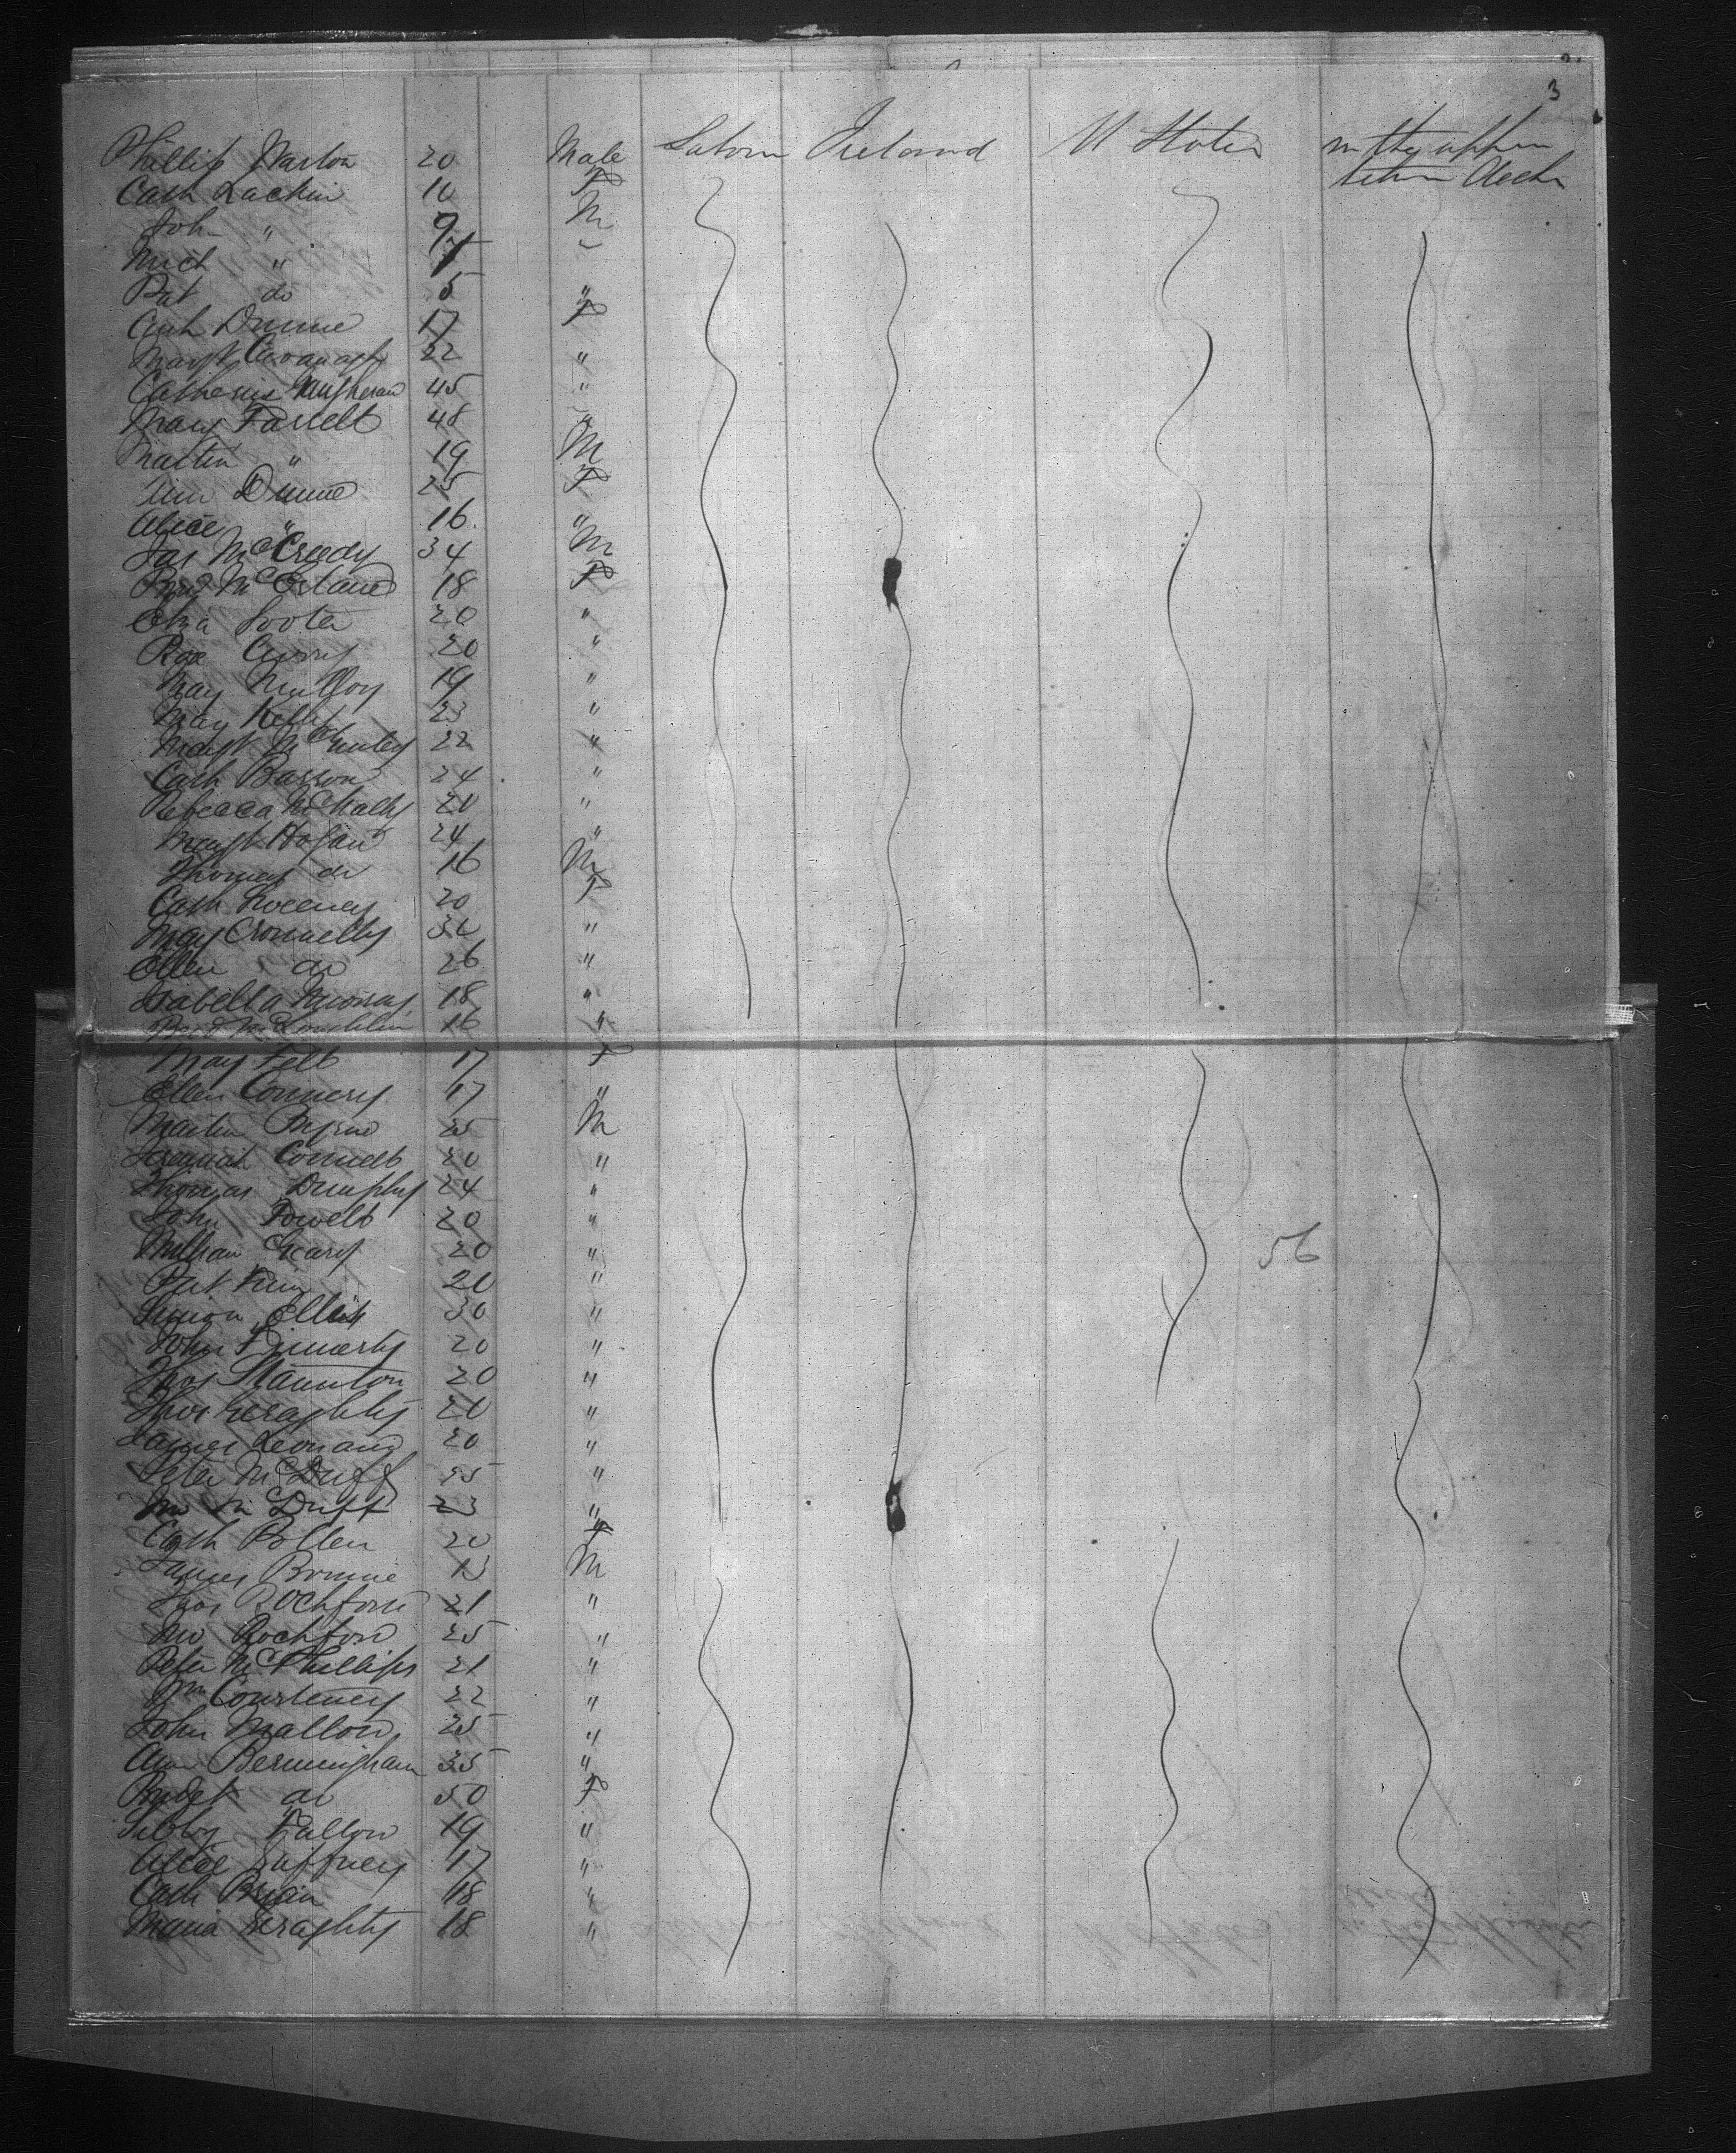 3
Phillip Narton 20 Male Laborer Ireland U States in the upper
between Decks
Cath Lackin 10 F
Joh " 9 M
Mich " 7 "
Pat do 5 "
Cath Dunne 17 F
Margt Cavanagh 22 "
Catherine 45 "
Mary Farrell 48 "
Martin " 19 M
Ann Dunne 25 F
Alice " 16 "
Jas McCready 34 M
Brid 18 F
Eliza 20 "
Rose 20 "
May Mulloy 19 "
May Kelly 23 "
Margt 22 "
Cath Barron 24 "
Rebecca McNally 20 "
Margt Hogan 24 "
Thomas do 16 M
Cath Sweeney 20 F
May Cronnelly 30 "
Ellen do 26 "
Isabella Murray 18 "
Brid McLoughlin 16 "
May Felt 17 F
Ellen Connery 17 "
Martin Byrne 25 M
Jeremiah Connell 20 "
Thomas Dumphy 24 "
John Powell 20 "
William Geary 20 " 56
Pat 20 "
Simon Ellis 30 "
John Finnerty 20 "
Thos Staunton 20 "
Thos Geraghty 20 "
James Leonard 20 "
Peter McDuff 25 "
Jno McDuff 23 "
Cath Pollen 20 F
James 13 M
Thos Rochford 21 "
Jno Rochford 25 "
Peter McPhillips 21 "
Wm Courteney 22 "
John Mallon 25 "
Ann Bermingham 35 "
Bridet do 50 F
Sibby Fallon 19 "
Alice Gaffney 17 "
Cath Brian 18 "
Maria Geraghty 18 "